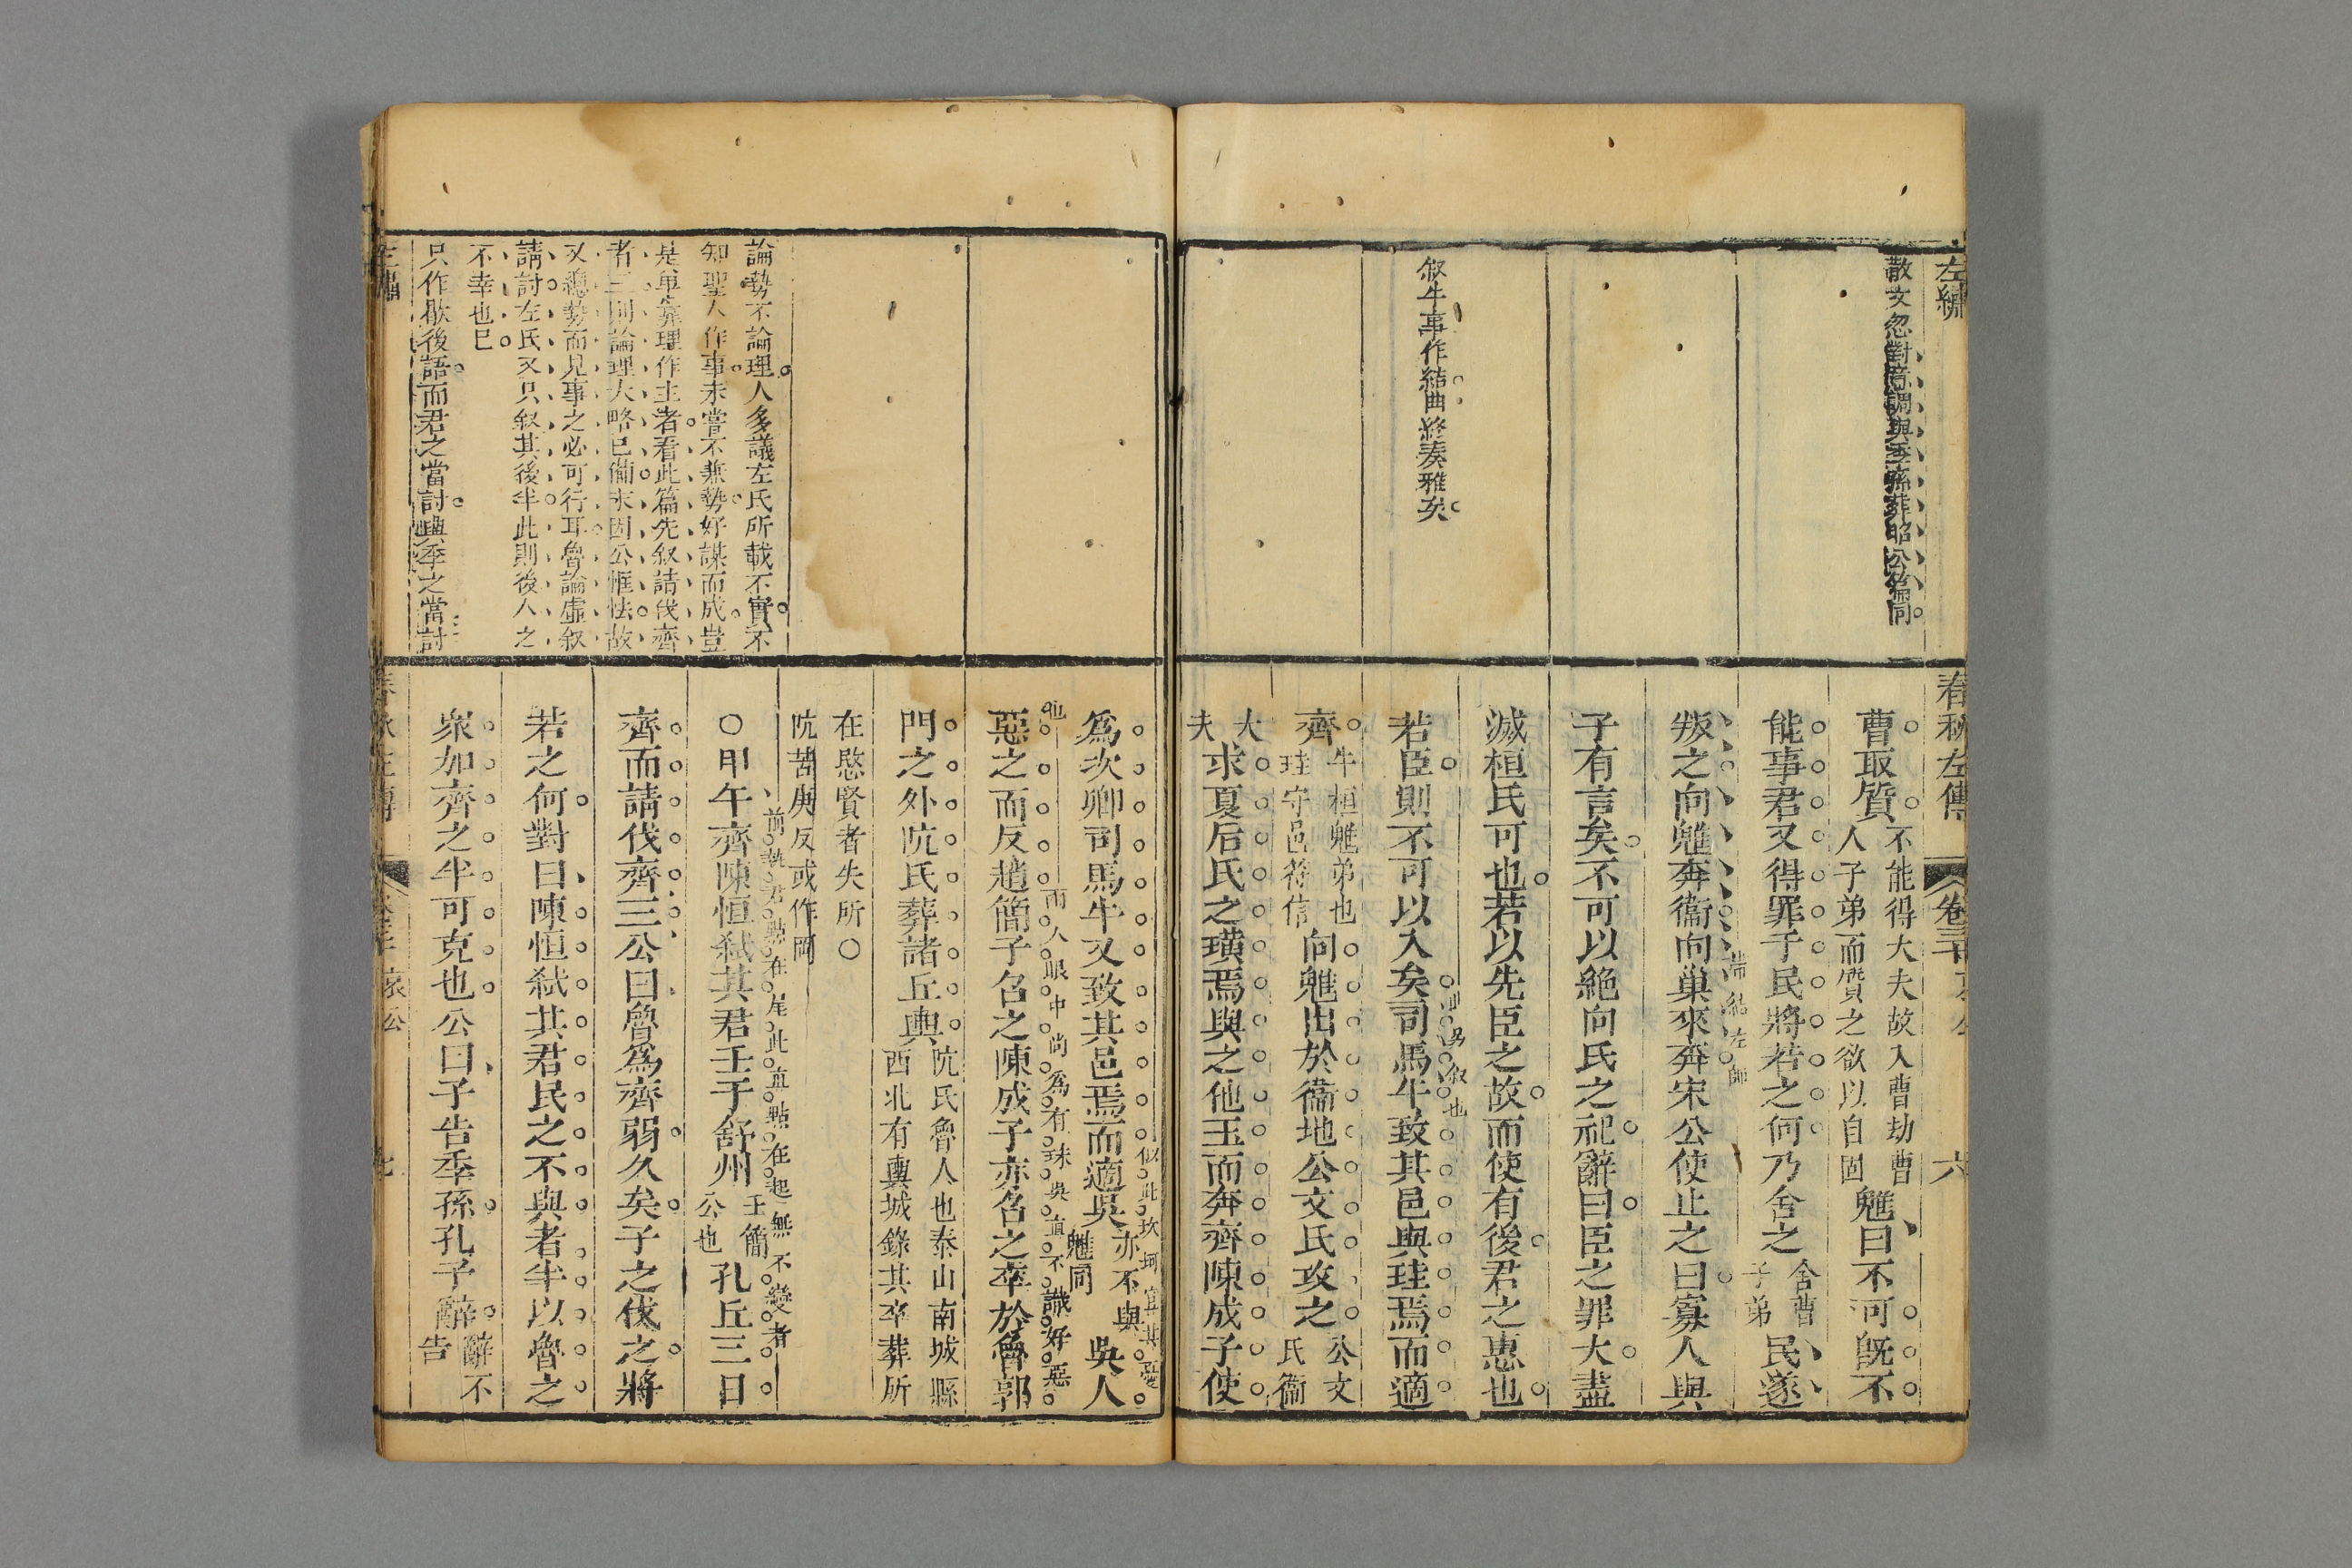 左繡
散文忽對意調與季孫葬昭公篇同
叙牛事作結曲終奏雅矣
春秋左傳
卷三十
六
曹取質
不能得大夫故入曹劫曹
人子弟而質之欲以自固
魋曰不可既不
能事君又得罪于民將若之何乃舍之
舍曹
子弟
民遂
叛之向魋奔衞向巢來奔宋公使止之曰寡人與
子有言矣不可以絶向氏之祀辭曰臣之罪大盡
滅桓氏可也若以先臣之故而使有後君之惠也
若臣則不可以入矣司馬牛致其邑與珪焉而適
齊
牛桓魋弟也
珪守邑符信
向魋出於衞地公文氏攻之
公文
氏衞
大
夫
求夏后氏之璜焉與之他玉而奔齊陳成子使
論勢不論理人多議左氏所載不實不
知聖人作事未嘗不兼勢好謀而成豈
是單靠理作主者看此篇先叙請伐齊
者三則論理大略已備末因公恇怯故
又總勢而見事之必可行耳魯論虛叙
請討左氏又只叙其後半此則後人之
不幸也已
只作歇後語而君之當討與季之當討
爲次卿司馬牛又致其邑焉而適吳
亦不與
魋同
吳人
惡之而反趙簡子召之陳成子亦召之卒於魯郭
門之外阬氏葬諸丘輿
阬氏魯人也泰山南城縣
西北有輿城錄其卒葬所
在愍賢者失所○
阬苦庚反或作岡
○甲午齊陳恒弑其君壬于舒州
壬簡
公也
孔丘三日
齊而請伐齊三公曰魯爲齊弱久矣子之伐之將
若之何對曰陳恒弑其君民之不與者半以魯之
衆加齊之半可克也公曰子告季孫孔子辭
辭不
告
哀公
七